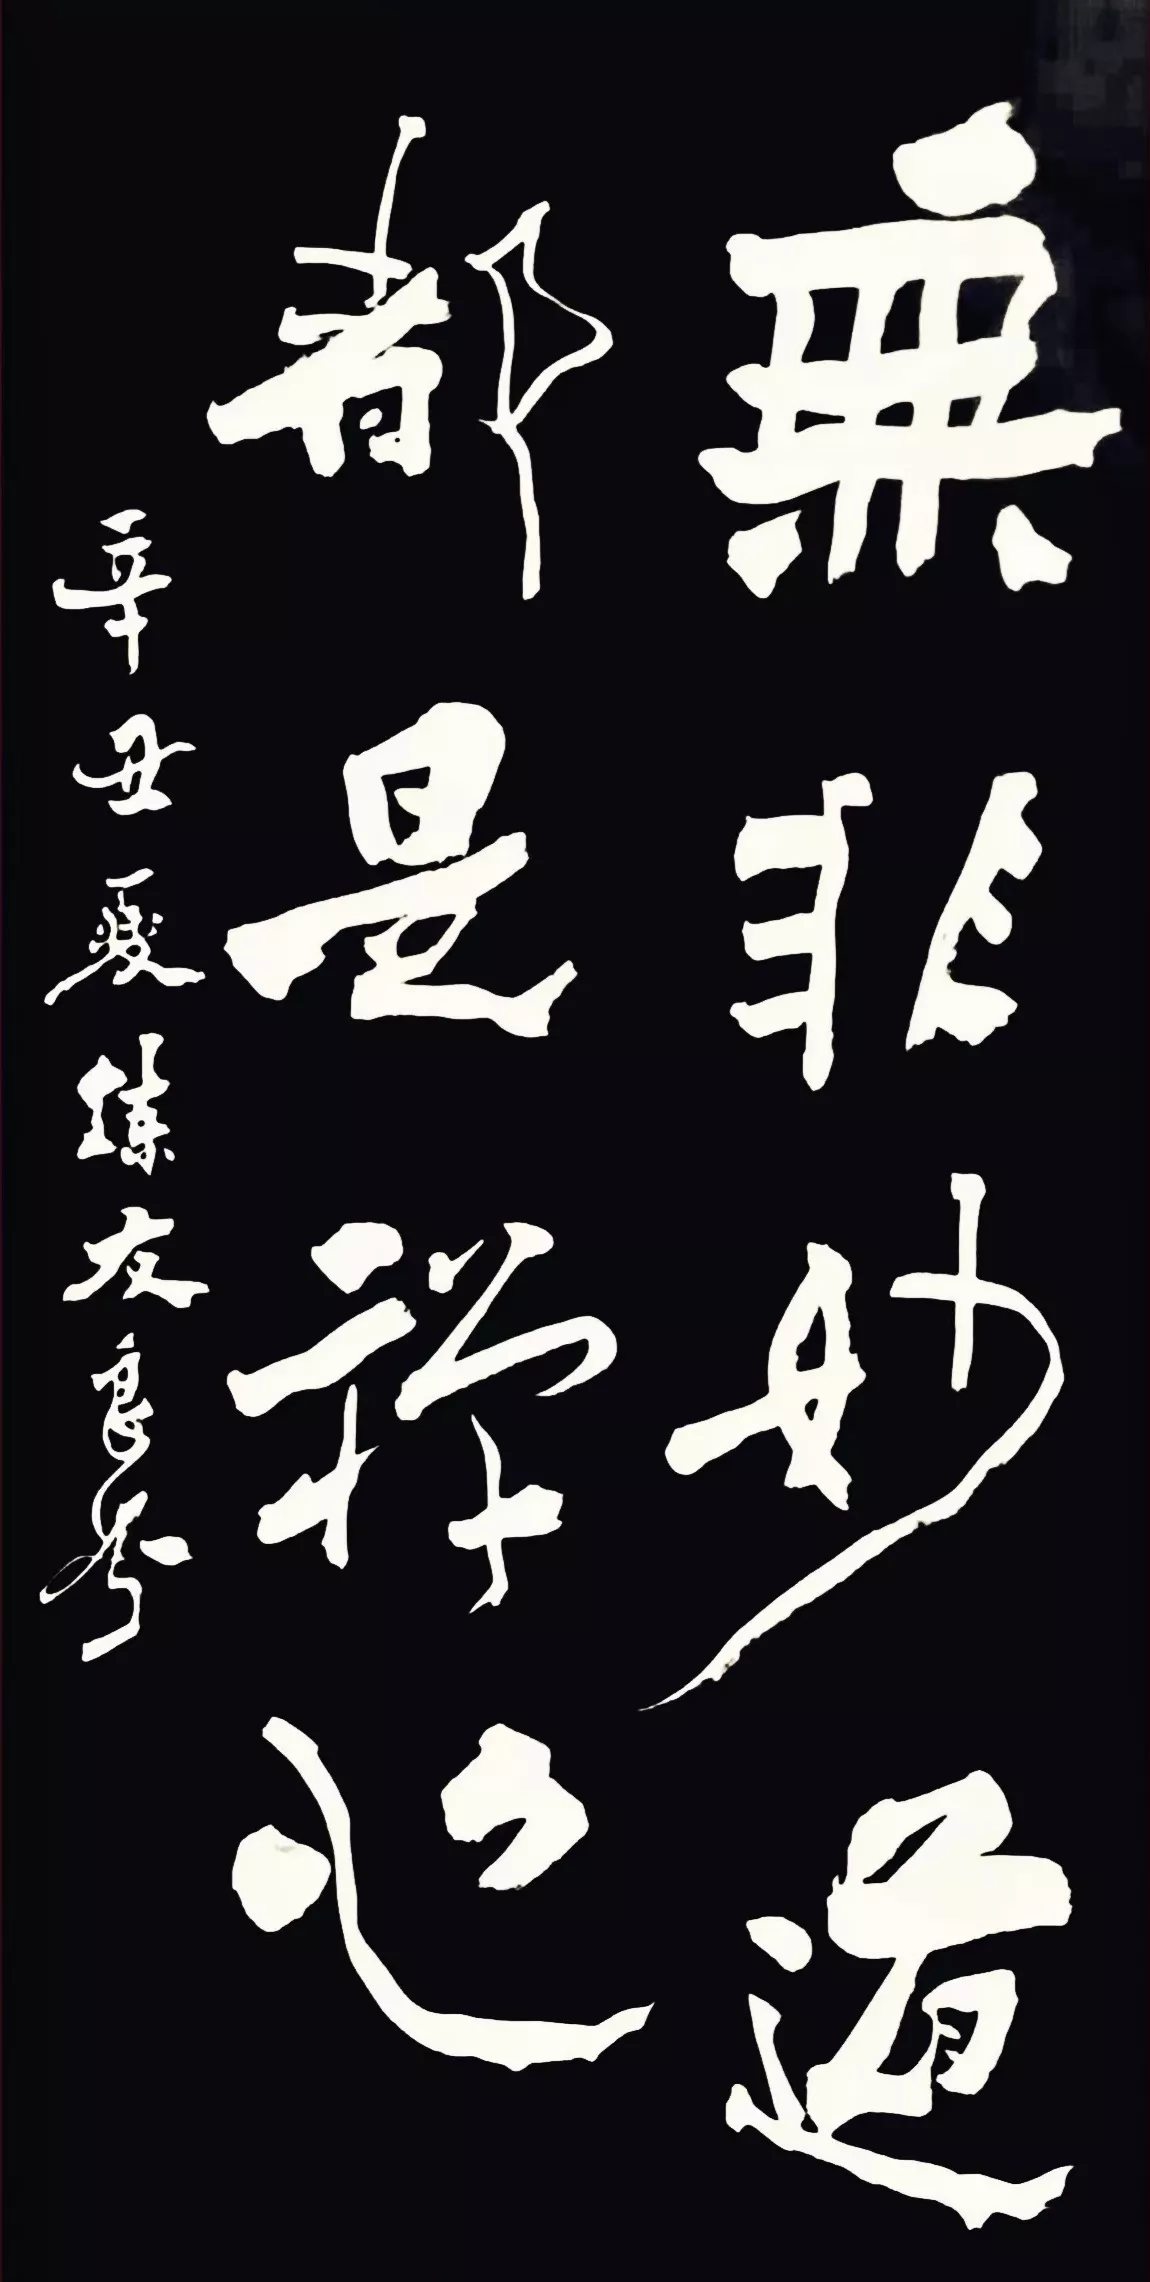 無非妙道
都是禪心
辛丑夏練友良書